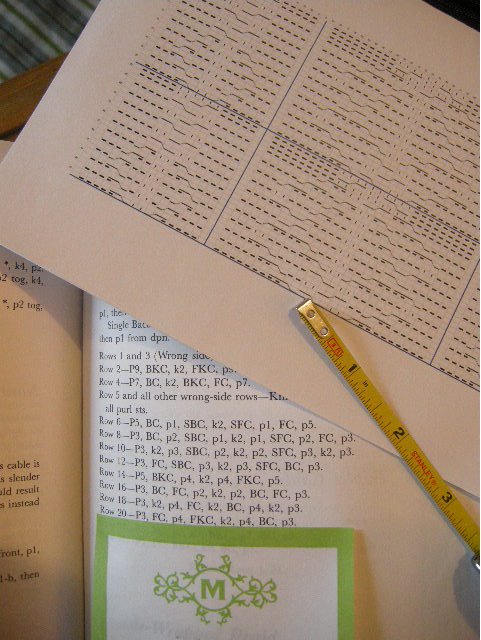 *, k4, p2,
p2 tog, k4,
*, p2 tog,
cable is
s slender
uld result
s instead
front, p1,
1-b, then
p1, then
Single Bac
then p1 from dpn.
Rows 1 and 3 (Wrong side
Row 2—P9, BKC, k2, FKC, p9.
Row 4—P7, BC, k2, BKC, FC, p7.
Row 5 and all other wrong-side rows—Kn
all purl sts.
Row 6—P5, BC, p1, SBC, k2, SFC, p1, FC, p5.
Row 8—P3, BC, p2, SBC, p1, k2, p1, SFC, p2, FC, p3.
Row 10—P3, k2, p3, SBC, p2, k2, p2, SFC, p3, k2, p3.
Row 12—P3, FC, SBC, p3, k2, p3, SFC, BC, p3.
Row 14—P5, BKC, p4, k2, p4, FKC, p5.
Row 16—P3, BC, FC, p2, k2, p2, BC, FC, p3.
Row 18—P3, k2, p4, FC, k2, BC, p4, k2, p3.
Row 20—P3, FC, p4, FKC, k2, p4, BC, p3.
M
1
in
2
STANLEY
3